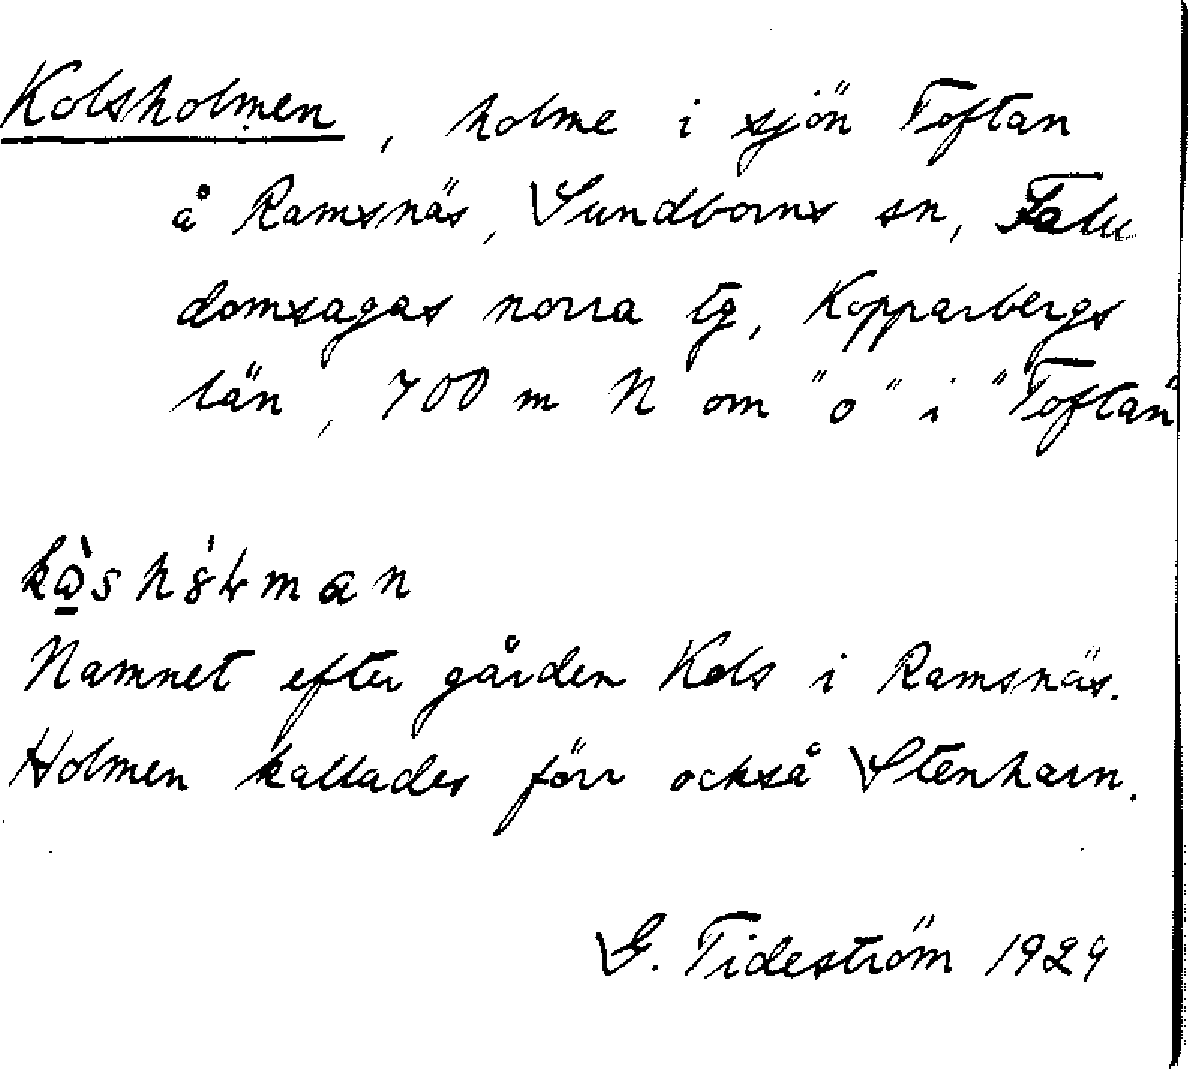 Kolsholmen, holme i sjön Toftan
å Ramsnäs, Sundborns sn, Falu
domsagas norra tg, Kopparbergs
län, 700 m N om "o" i "Toftan"
Namnet efter gården Kols i Ramsnäs.
Holmen kallades förr också Stenharn.
G. Tideström 1929